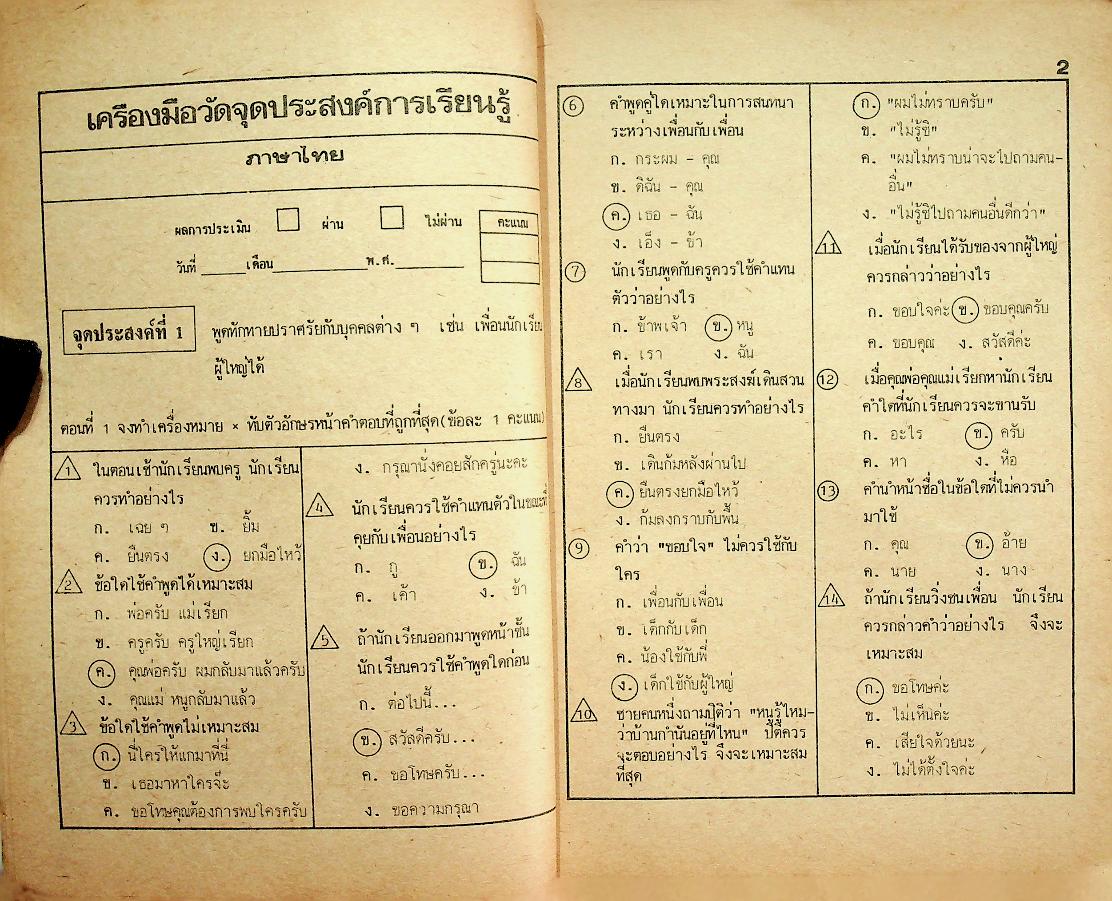 เครื่องมือวัดจุดประสงค์การเรียนรู้
ภาษาไทย
ผลการประเมิน ผ่าน ไม่ผ่าน คะแนน
วันที่ ____ เดือน__________ พ.ศ. ________
จุดประสงค์ที่ 1 พูดทักทายปราศรัยกับบุคคลต่าง ๆ เช่น เพื่อนนักเรียน
ผู้ใหญ่ได้
ตอนที่ 1 จงทำเครื่องหมาย × ทับตัวอักษรหน้าคำตอบที่ถูกที่สุด(ข้อละ 1 คะแนน)
1 ในตอนเช้านักเรียนพบครู นักเรียน
ควรทำอย่างไร
ก. เฉย ๆ ข. ยิ้ม
ค. ยืนตรง ง. ยกมือไหว้
2 ข้อใดใช้คำพูดได้เหมาะสม
ก. พ่อครับ แม่เรียก
ข. ครูครับ ครูใหญ่เรียก
ค. คุณพ่อครับ ผมกลับมาแล้วครับ
ง. คุณแม่ หนูกลับมาแล้ว
3 ข้อใดใช้คำพูดไม่เหมาะสม
ก. นี่ใครให้แกมาที่นี่
ข. เธอมาหาใครจ๊ะ
ค. ขอโทษคุณต้องการพบใครครับ
ง. กรุณานั่งคอยสักครู่นะคะ
4 นักเรียนควรใช้คำแทนตัวในขณะที่
คุยกับเพื่อนอย่างไร
ก. กู ข. ฉัน
ค. เค้า ง. ข้า
5 ถ้านักเรียนออกมาพูดหน้าชั้น
นักเรียนควรใช้คำพูดใดก่อน
ก. ต่อไปนี้...
ข. สวัสดีครับ...
ค. ขอโทษครับ...
ง. ขอความกรุณา
2
6 คำพูดคู่ใดเหมาะในการสนทนา
ระหว่างเพื่อนกับเพื่อน
ก. กระผม - คุณ
ข. ดิฉัน - คุณ
ค. เธอ - ฉัน
ง. เอ็ง - ข้า
7 นักเรียนพูดกับครูควรใช้คำแทน
ตัวว่าอย่างไร
ก. ข้าพเจ้า ข. หนู
ค. เรา ง. ฉัน
8 เมื่อนักเรียนพบพระสงฆ์เดินสวน
ทางมา นักเรียนควรทำอย่างไร
ก. ยืนตรง
ข. เดินก้มหลังผ่านไป
ค. ยืนตรงยกมือไหว้
ง. ก้มลงกราบกับพื้น
9 คำว่า "ขอบใจ" ไม่ควรใช้กับ
ใคร
ก. เพื่อนกับเพื่อน
ข. เด็กกับเด็ก
ค. น้องใช้กับพี่
ง. เด็กใช้กับผู้ใหญ่
10 ชายคนหนึ่งถามปิติว่า "หนูรู้ไหม-
ว่าบ้านกำนันอยู่ที่ไหน" ปิติควร
จะตอบอย่างไร จึงจะเหมาะสม
ที่สุด
ก. "ผมไม่ทราบครับ"
ข. "ไม่รู้ซิ"
ค. "ผมไม่ทราบน่าจะไปถามคน-
อื่น"
ง. "ไม่รู้ซิไปถามคนอื่นดีกว่า"
11 เมื่อนักเรียนได้รับของจากผู้ใหญ่
ควรกล่าวว่าอย่างไร
ก. ขอบใจค่ะ ข. ขอบคุณครับ
ค. ขอบคุณ ง. สวัสดีค่ะ
12 เมื่อคุณพ่อคุณแม่เรียกหานักเรียน
คำใดที่นักเรียนควรจะขานรับ
ก. อะไร ข. ครับ
ค. หา ง. หือ
13 คำนำหน้าชื่อในข้อใดที่ไม่ควรนำ
มาใช้
ก. คุณ ข. อ้าย
ค. นาย ง. นาง
14 ถ้านักเรียนวิ่งชนเพื่อน นักเรียน
ควรกล่าวคำว่าอย่างไร จึงจะ
เหมาะสม
ก. ขอโทษค่ะ
ข. ไม่เห็นค่ะ
ค. เสียใจด้วยนะ
ง. ไม่ได้ตั้งใจค่ะ